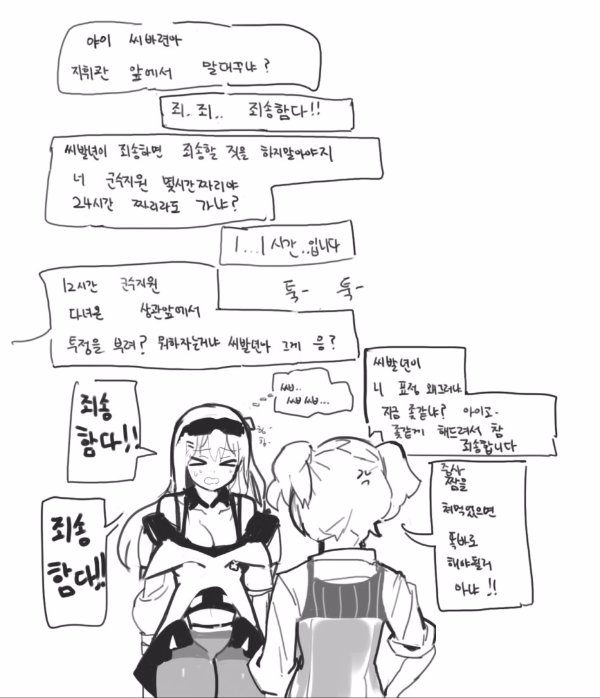 야이 씨바련아
지휘관 앞에서 말대꾸냐?
죄.죄.. 죄송함다!!
씨발년이 죄송하면 죄송할 짓을 하지말아야지
너 군수지원 몇시간짜리야
24시간 짜리라도 가냐?
1...1시간..입니다
12시간 군수지원
다녀온 상관앞에서
투정을 부려? 뭐하자는거냐 씨발년아 그게 응?
툭- 툭-
씨발년이
니 표정 왜그러냐
지금 좆같냐? 아이고-
좆같게 해드려서 참
죄송합니다
씨브..
씨브씨브...
죄송
함다!!
죄송
함다!!
중사
짬을
쳐먹었으면
똑바로
해야될거
아냐!!